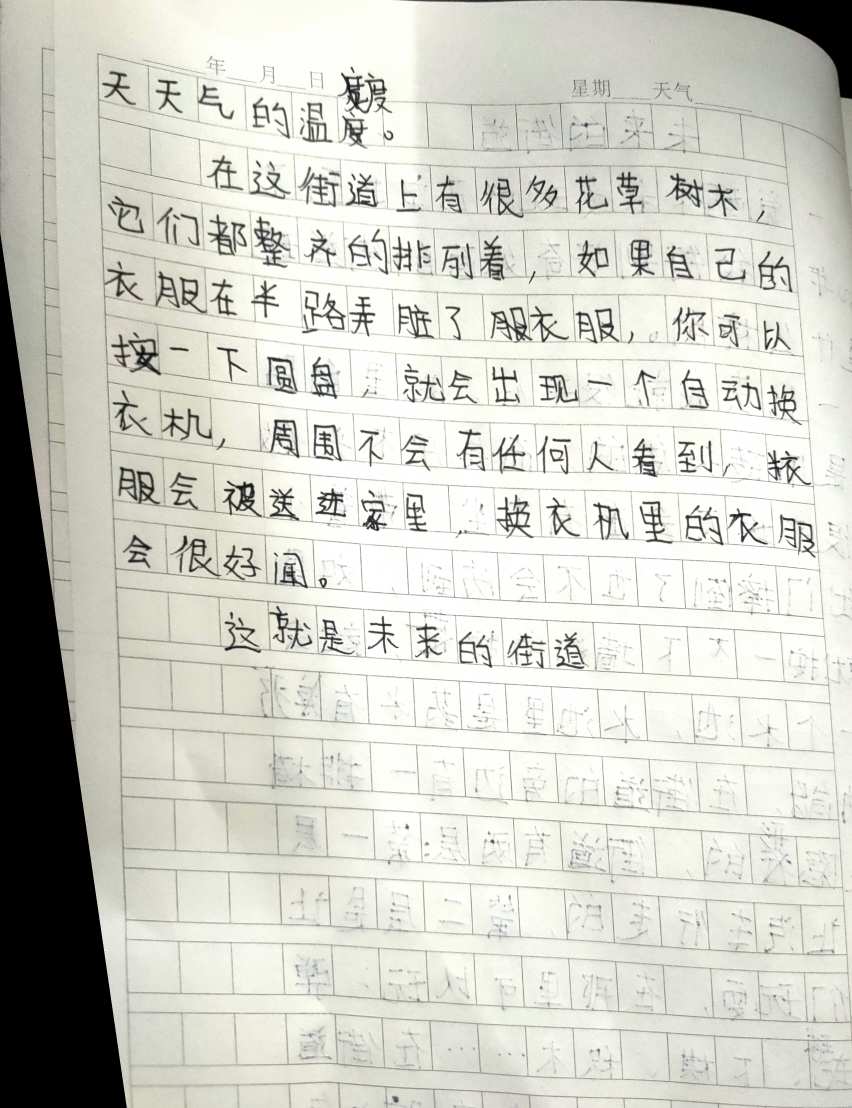 年 月 日 星期 天气
度度
天天气的温度。
在这街道上有很多花草树木，
它们都整齐的排列着，如果自己的
衣服在半路弄脏了服衣服，你可以
按一下圆盘，就会出现一个自动换
衣机，周围不会有任何人看到，
服会被送进家里，换衣机里的衣服
会很好闻。
这就是未来的街道